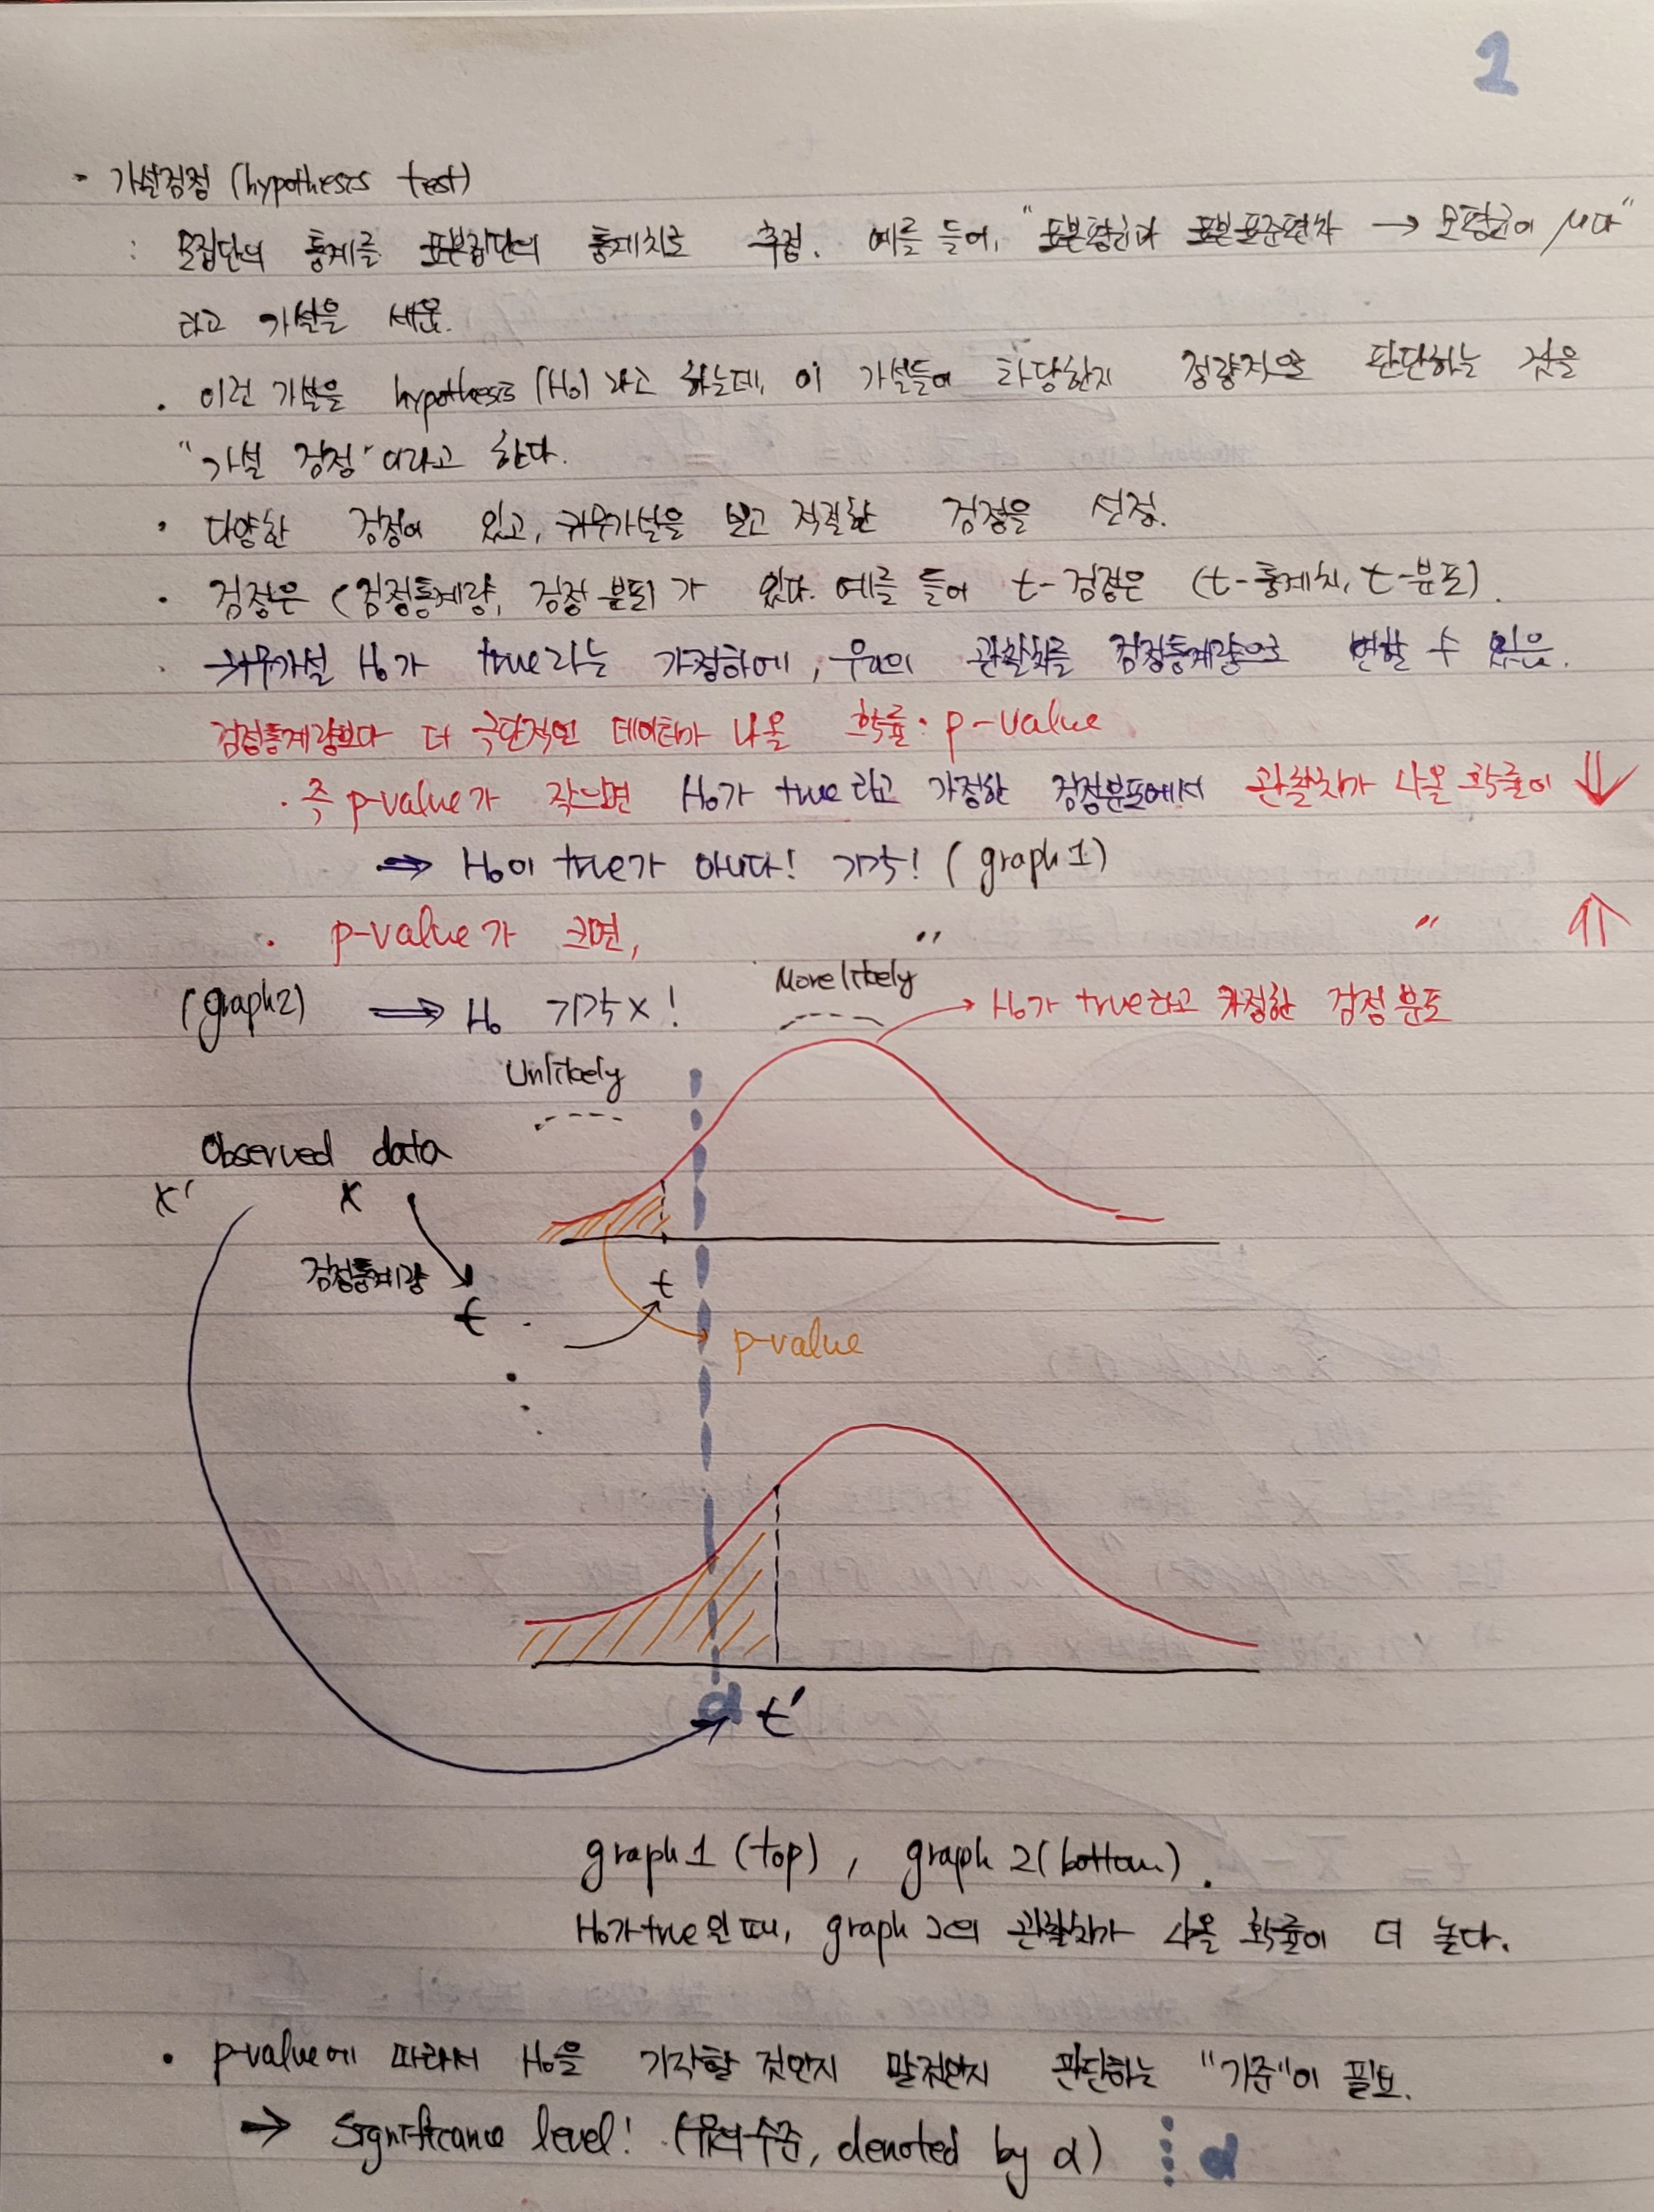 1
· 가설검정 (hypothesis test)
: 모집단의 통계를 표본집단의 통계치로 추정. 예를 들어, "표본평균과 표본표준편차 → 모평균이 μ다"
라고 가설을 세움.
· 이런 가설을 hypothesis (H₀) 라고 하는데, 이 가설들이 타당한지 정량적으로 판단하는 것을
"가설 검정"이라고 한다.
· 다양한 검정이 있고, 귀무가설을 보고 적절한 검정을 선정.
· 검정은 (검정통계량, 검정 분포)가 있다. 예를 들어 t-검정은 (t-통계치, t-분포).
· 귀무가설 H₀가 true라는 가정하에, 우리의 관찰치를 검정통계량으로 변할 수 있음.
검정통계량보다 더 극단적인 데이터가 나올 확률: p-value
· 즉 p-value가 작으면 H₀가 true라고 가정한 검정분포에서 관찰치가 나올 확률이 ⇓
⇒ H₀이 true가 아니다! 기각! (graph 1)
· p-value가 크면, " " ⇑
(graph2) ⇒ H₀ 기각 x !
More likely
→ H₀가 true라고 가정한 검정 분포
Unlikely
Observed data
x' x
검정통계량
t
t
p-value
α t'
graph 1 (top), graph 2 (bottom).
H₀가 true일 때, graph 2의 관찰치가 나올 확률이 더 높다.
· p-value에 따라서 H₀을 기각할 것인지 말것인지 판단하는 "기준"이 필요.
→ Significance level! (유의수준, denoted by α) ⋮ α